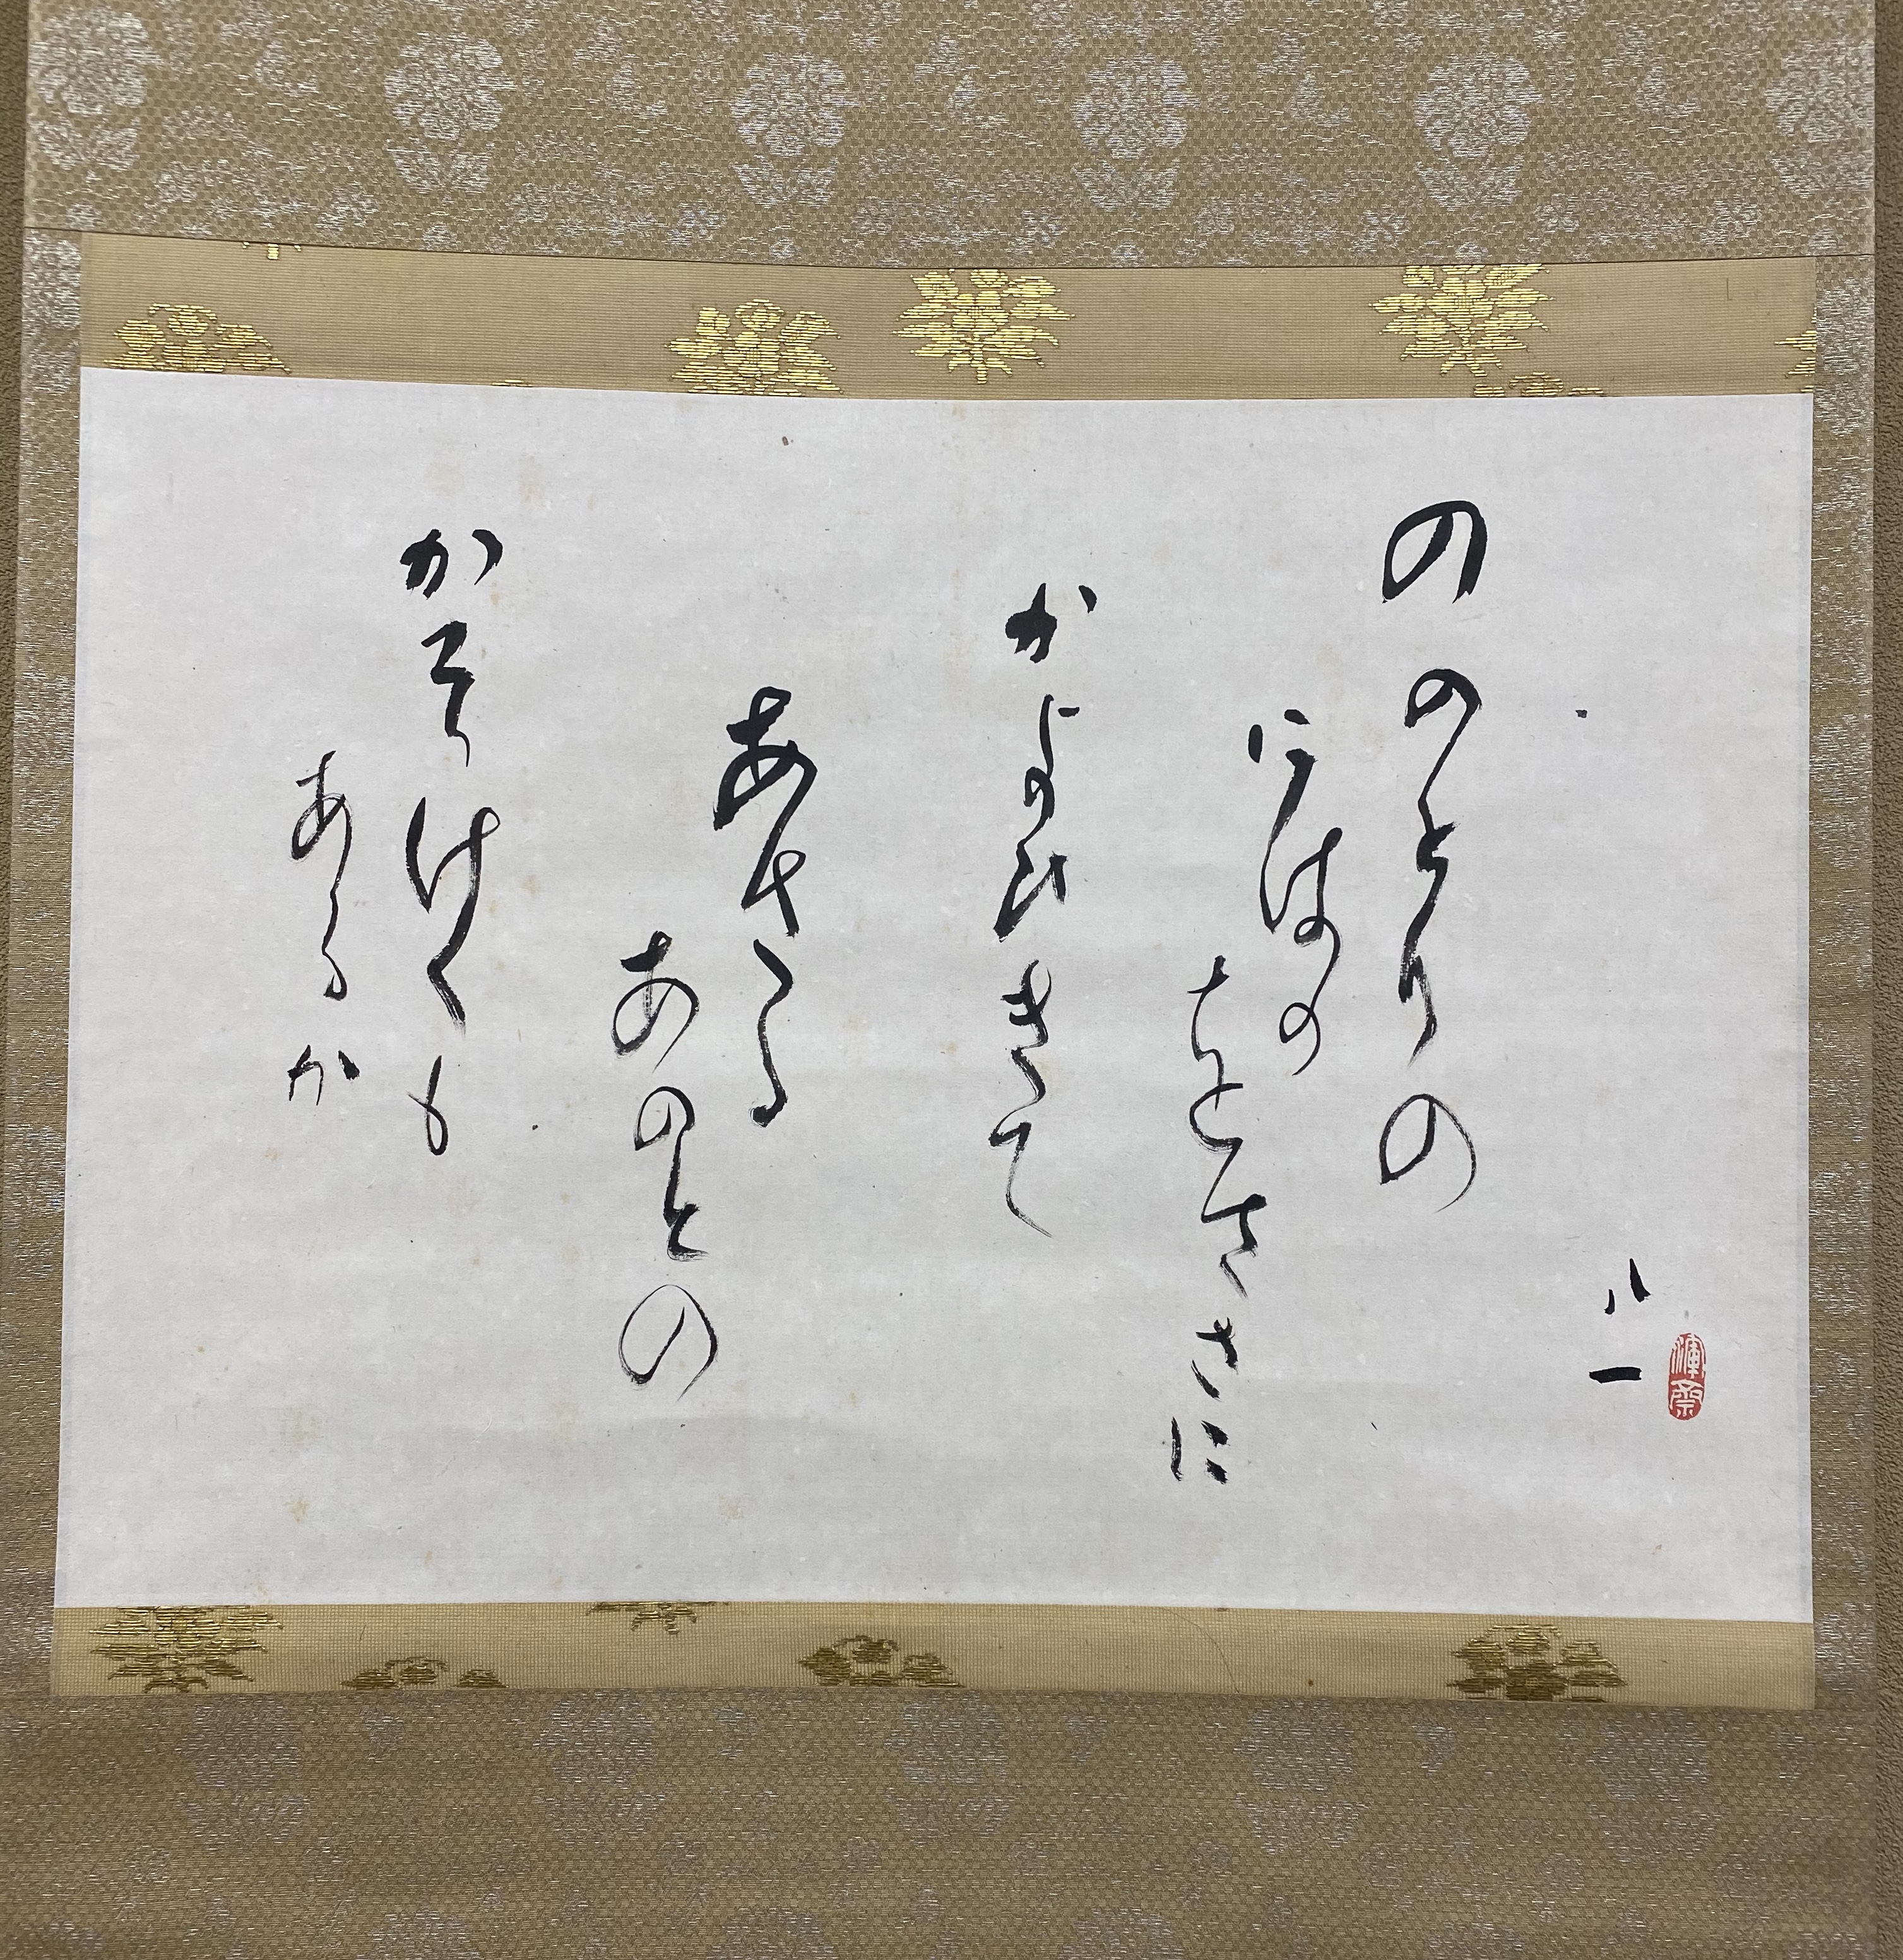 八一
渾齋
ののとりの
にはの
をささに
かよひきて
あさる
あのとの
かそけくも
あるか